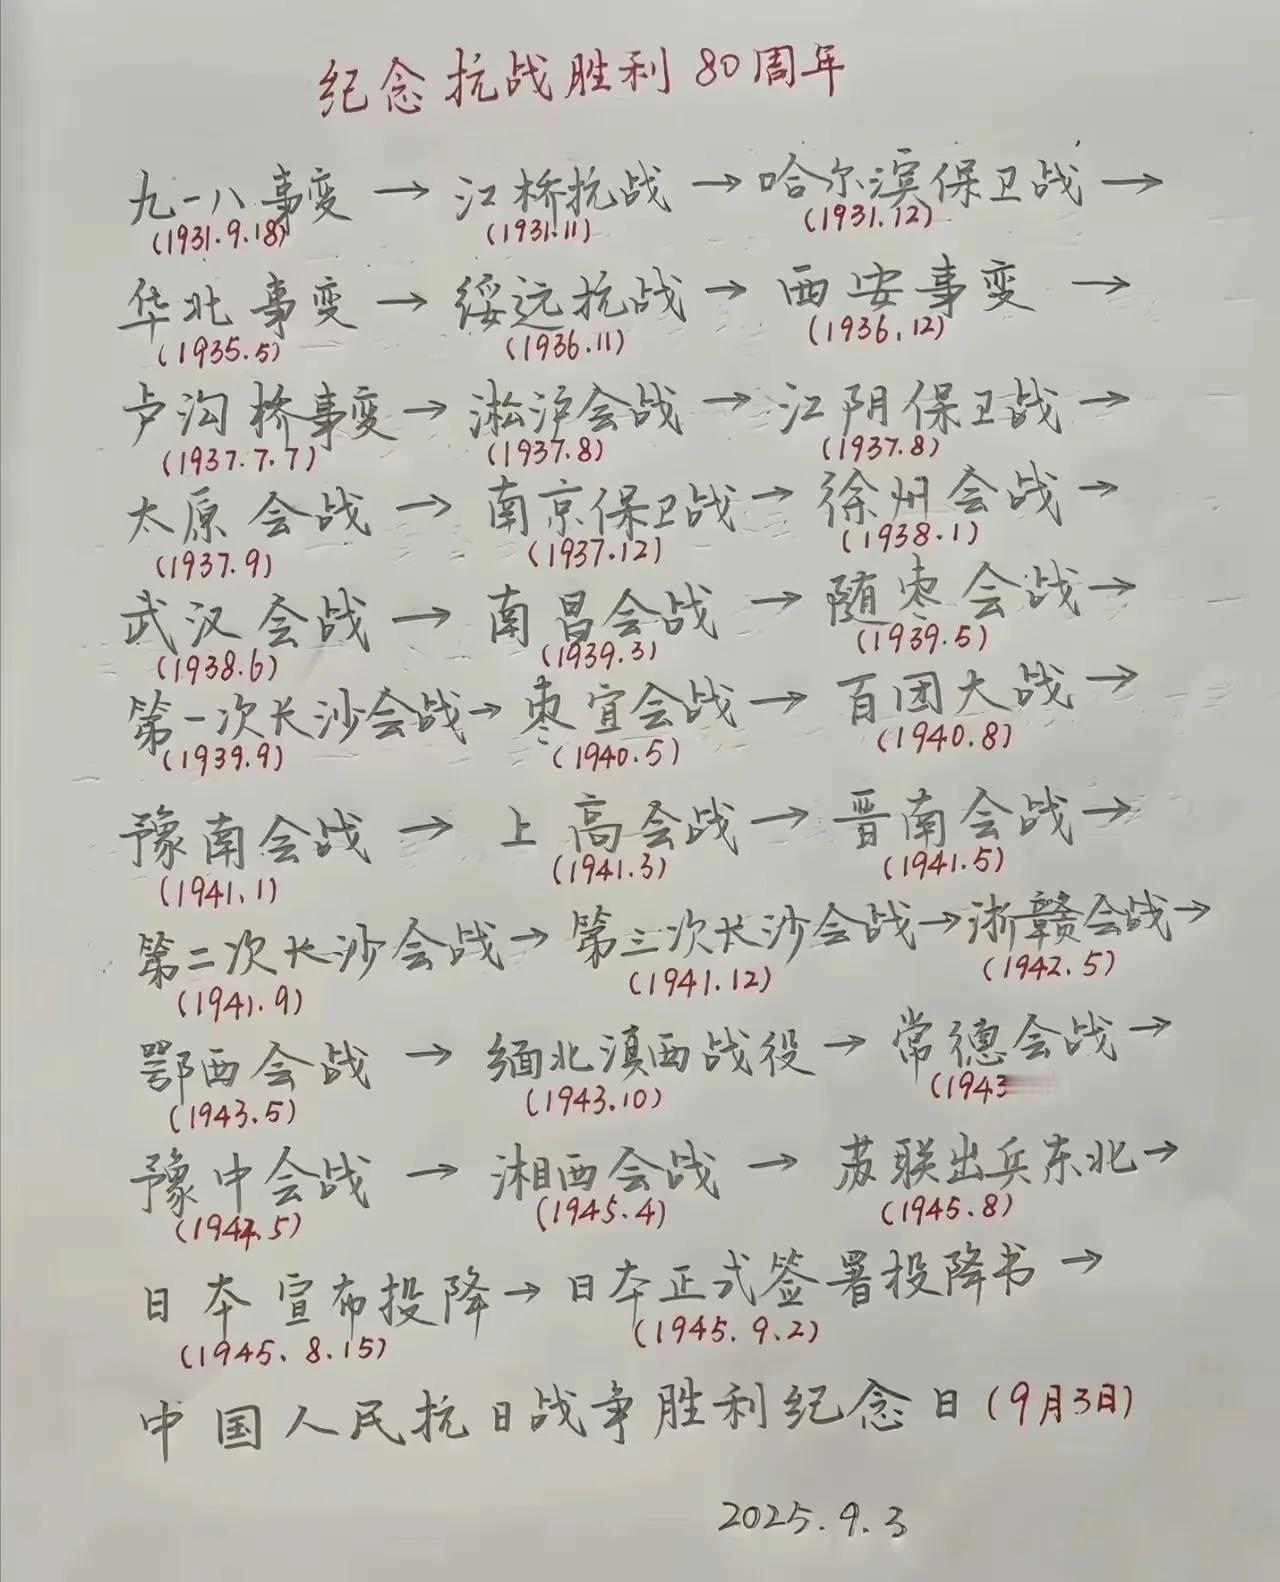 纪念抗战胜利80周年
九一八事变→江桥抗战→哈尔滨保卫战→
(1931.9.18) (1931.11) (1931.12)
华北事变→绥远抗战→西安事变→
(1935.5) (1936.11) (1936.12)
卢沟桥事变→淞沪会战→江阴保卫战→
(1937.7.7) (1937.8) (1937.8)
太原会战→南京保卫战→徐州会战→
(1937.9) (1937.12) (1938.1)
武汉会战→南昌会战→随枣会战→
(1938.6) (1939.3) (1939.5)
第一次长沙会战→枣宜会战→百团大战→
(1939.9) (1940.5) (1940.8)
豫南会战→上高会战→晋南会战→
(1941.1) (1941.3) (1941.5)
第二次长沙会战→第三次长沙会战→浙赣会战→
(1941.9) (1941.12) (1942.5)
鄂西会战→缅北滇西战役→常德会战→
(1943.5) (1943.10) (1943
豫中会战→湘西会战→苏联出兵东北→
(1944.5) (1945.4) (1945.8)
日本宣布投降→日本正式签署投降书→
(1945.8.15) (1945.9.2)
中国人民抗日战争胜利纪念日(9月3日)
2025.9.3